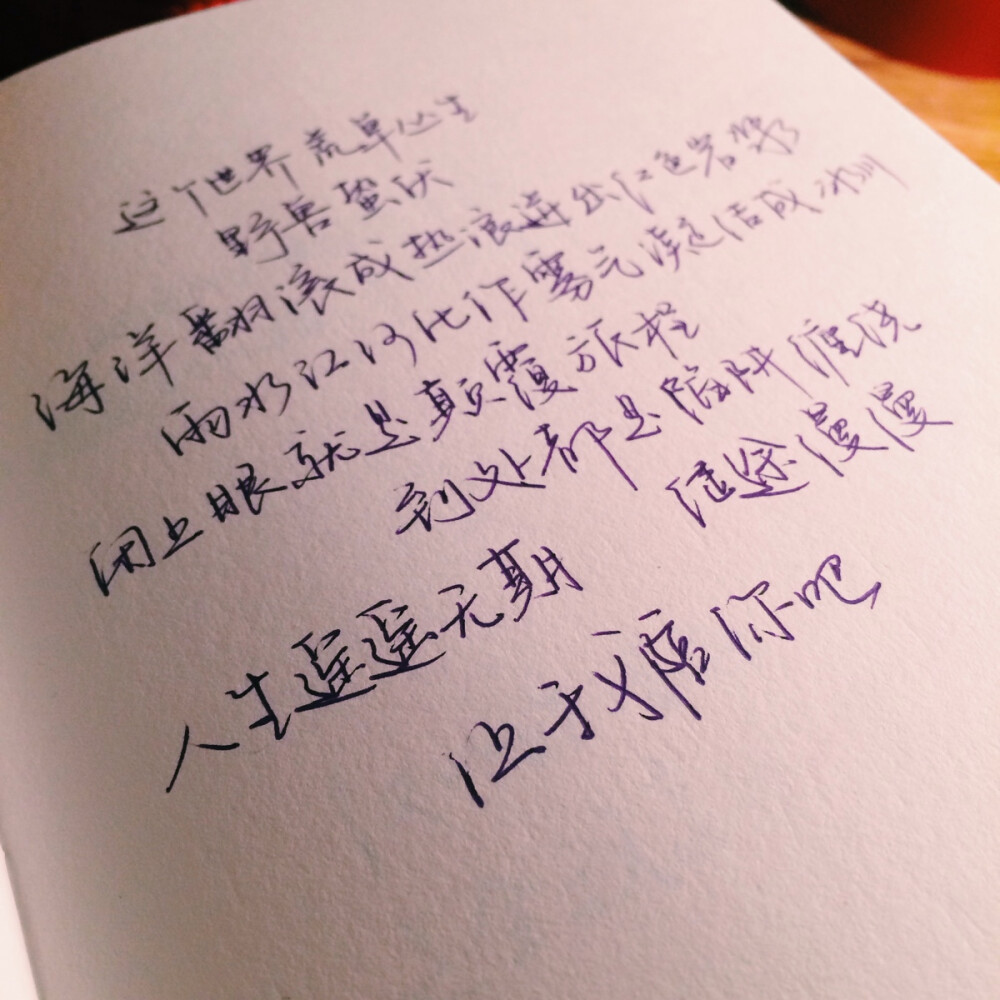 这个世界 荒草丛生
野兽蛰伏
海洋翻滚成热浪迸出红色岩浆
雨水江河化作雾气凝结成冰川
闭上眼就是颠覆旅程
到处都是陷阱缠绕
征途漫漫
人生遥遥无期
让我陪你吧